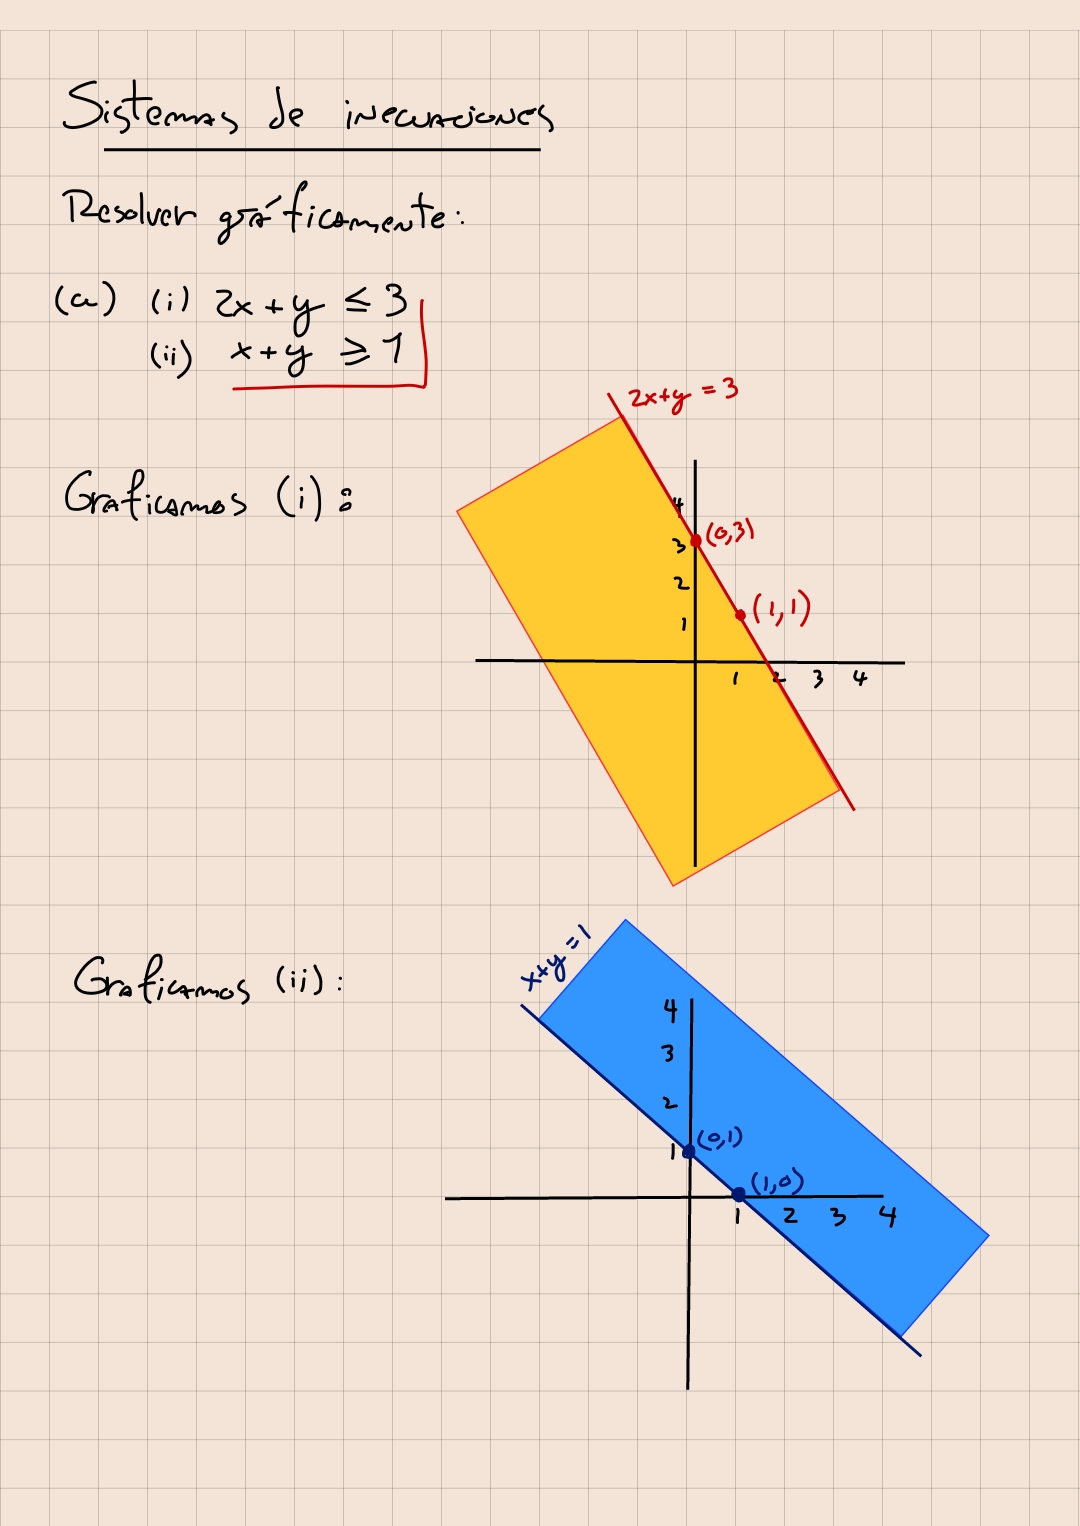 Sistemas de inecuaciones
Resolver gráficamente:
(a) (i) 2x + y ≤ 3
(ii) x + y ≥ 1
2x+y = 3
Graficamos (i):
4
(0,3)
3
2
(1,1)
1
1 2 3 4
x+y=1
Graficamos (ii):
4
3
2
(0,1)
1
(1,0)
1 2 3 4